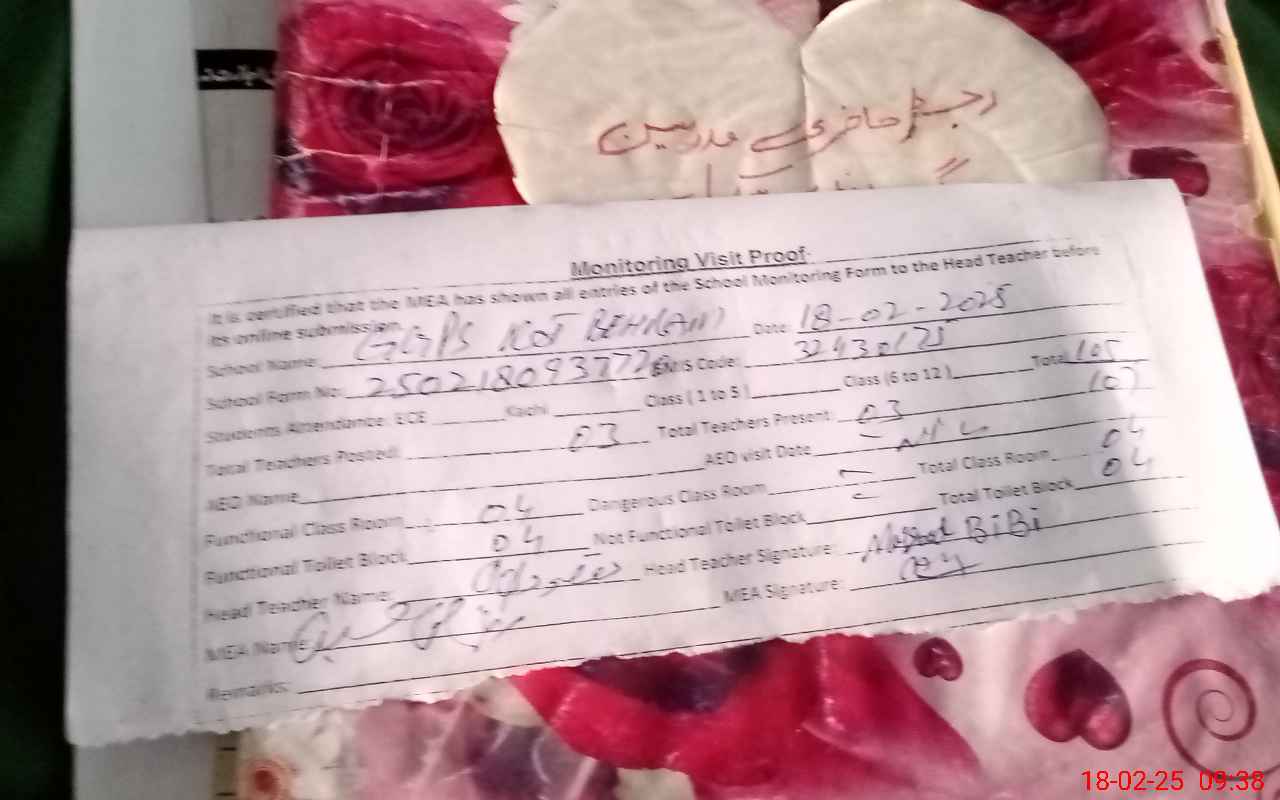 رجسٹر حاضری مدرسین
Monitoring Visit Proof
It is certified that the MEA has shown all entries of the School Monitoring Form to the Head Teacher before
its online submission.
School Name: GGPS KOT BEHRAM Date: 18-02-2025
School Form No: 2502180937726 EMIS Code: 32430175
Students Attendance: ECE Kachi Class ( 1 to 5 ) Class (6 to 12 ) Total 105
107
Total Teachers Posted: 03 Total Teachers Present: 03
AEO Name AEO visit Date
Functional Class Room 04 Dangerous Class Room Total Class Room 04
Functional Toilet Block 04 Not Functional Toilet Block Total Toilet Block 04
Head Teacher Name: Head Teacher Signature: BiBi
MEA Name: MEA Signature:
Remarks:
18-02-25 09:38